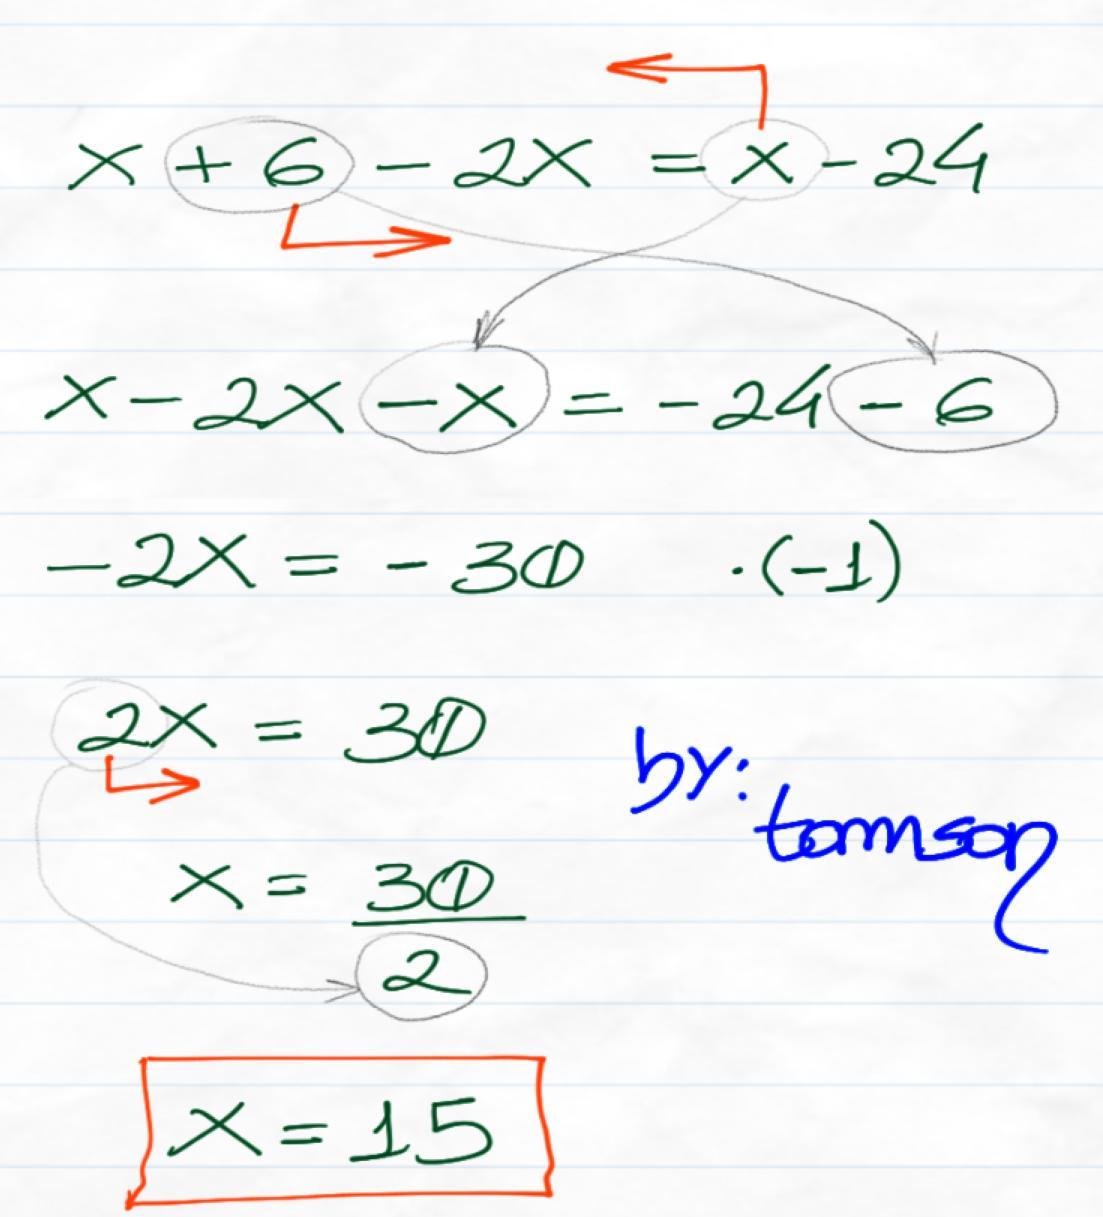 x + 6 - 2x = x - 24
x - 2x - x = -24 - 6
-2x = -30 ·(-1)
2x = 30
by:
tomson
x = 30
2
x = 15